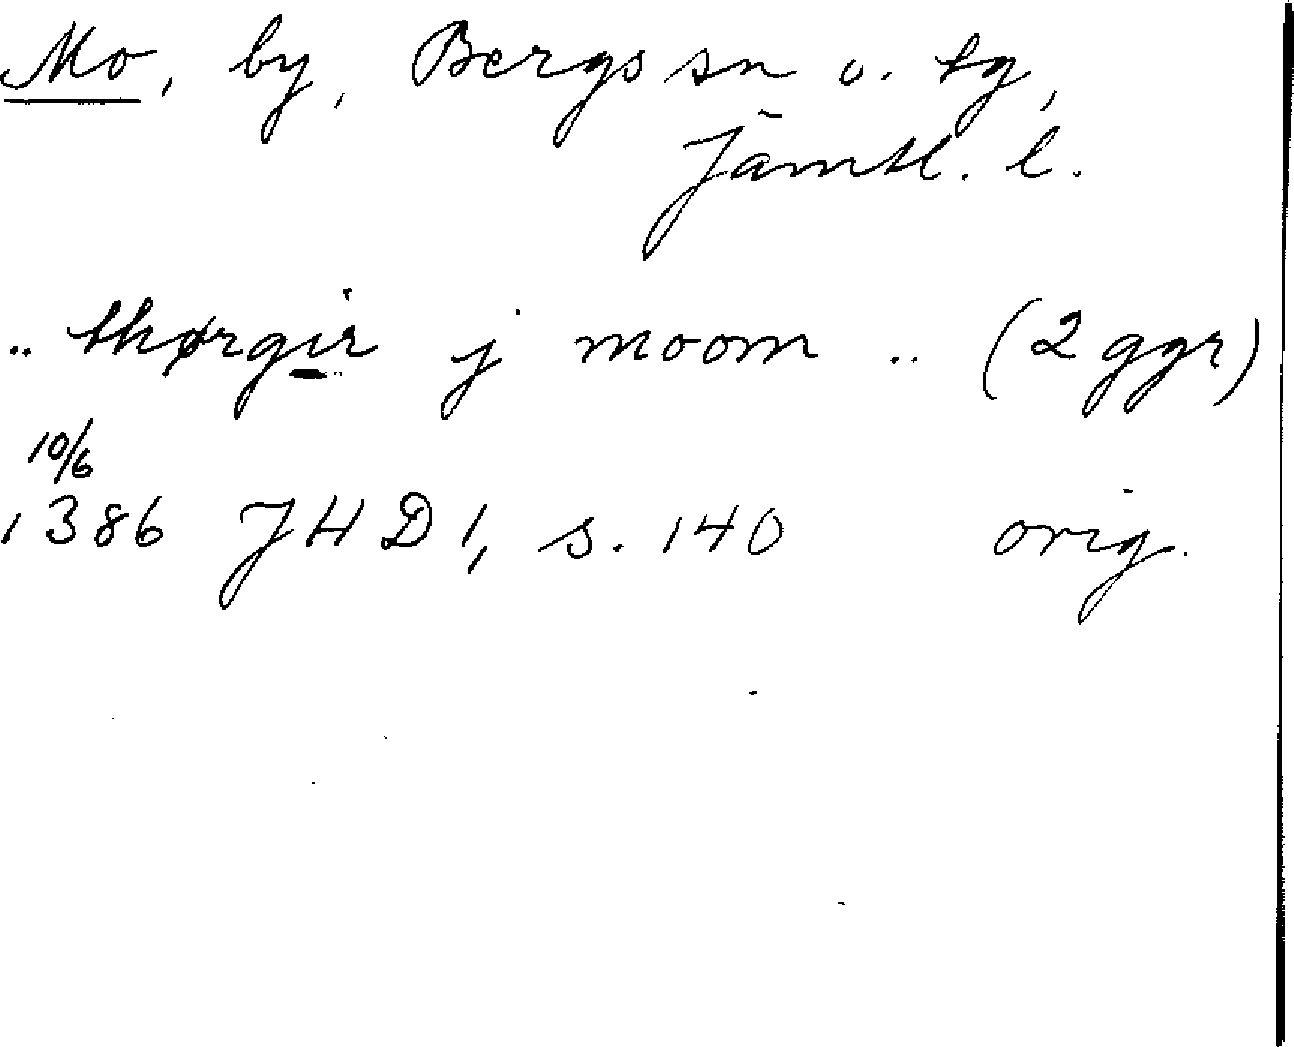 Mo, by, Bergs sn o. tg,
Jämtl. l.
.. thørgir j moom .. (2 ggr)
10/6
1386 JHD 1, s. 140 orig.